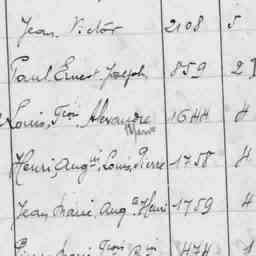 Jean, Victor 2108 5
Paul Ernest Joseph 859 2
Louis, Fçois Alexandre 1644 4
Marie
Henri, Augtin, Louis, Pierre 1758 4
Jean Marie, Augte Henri 1759 4
474 1